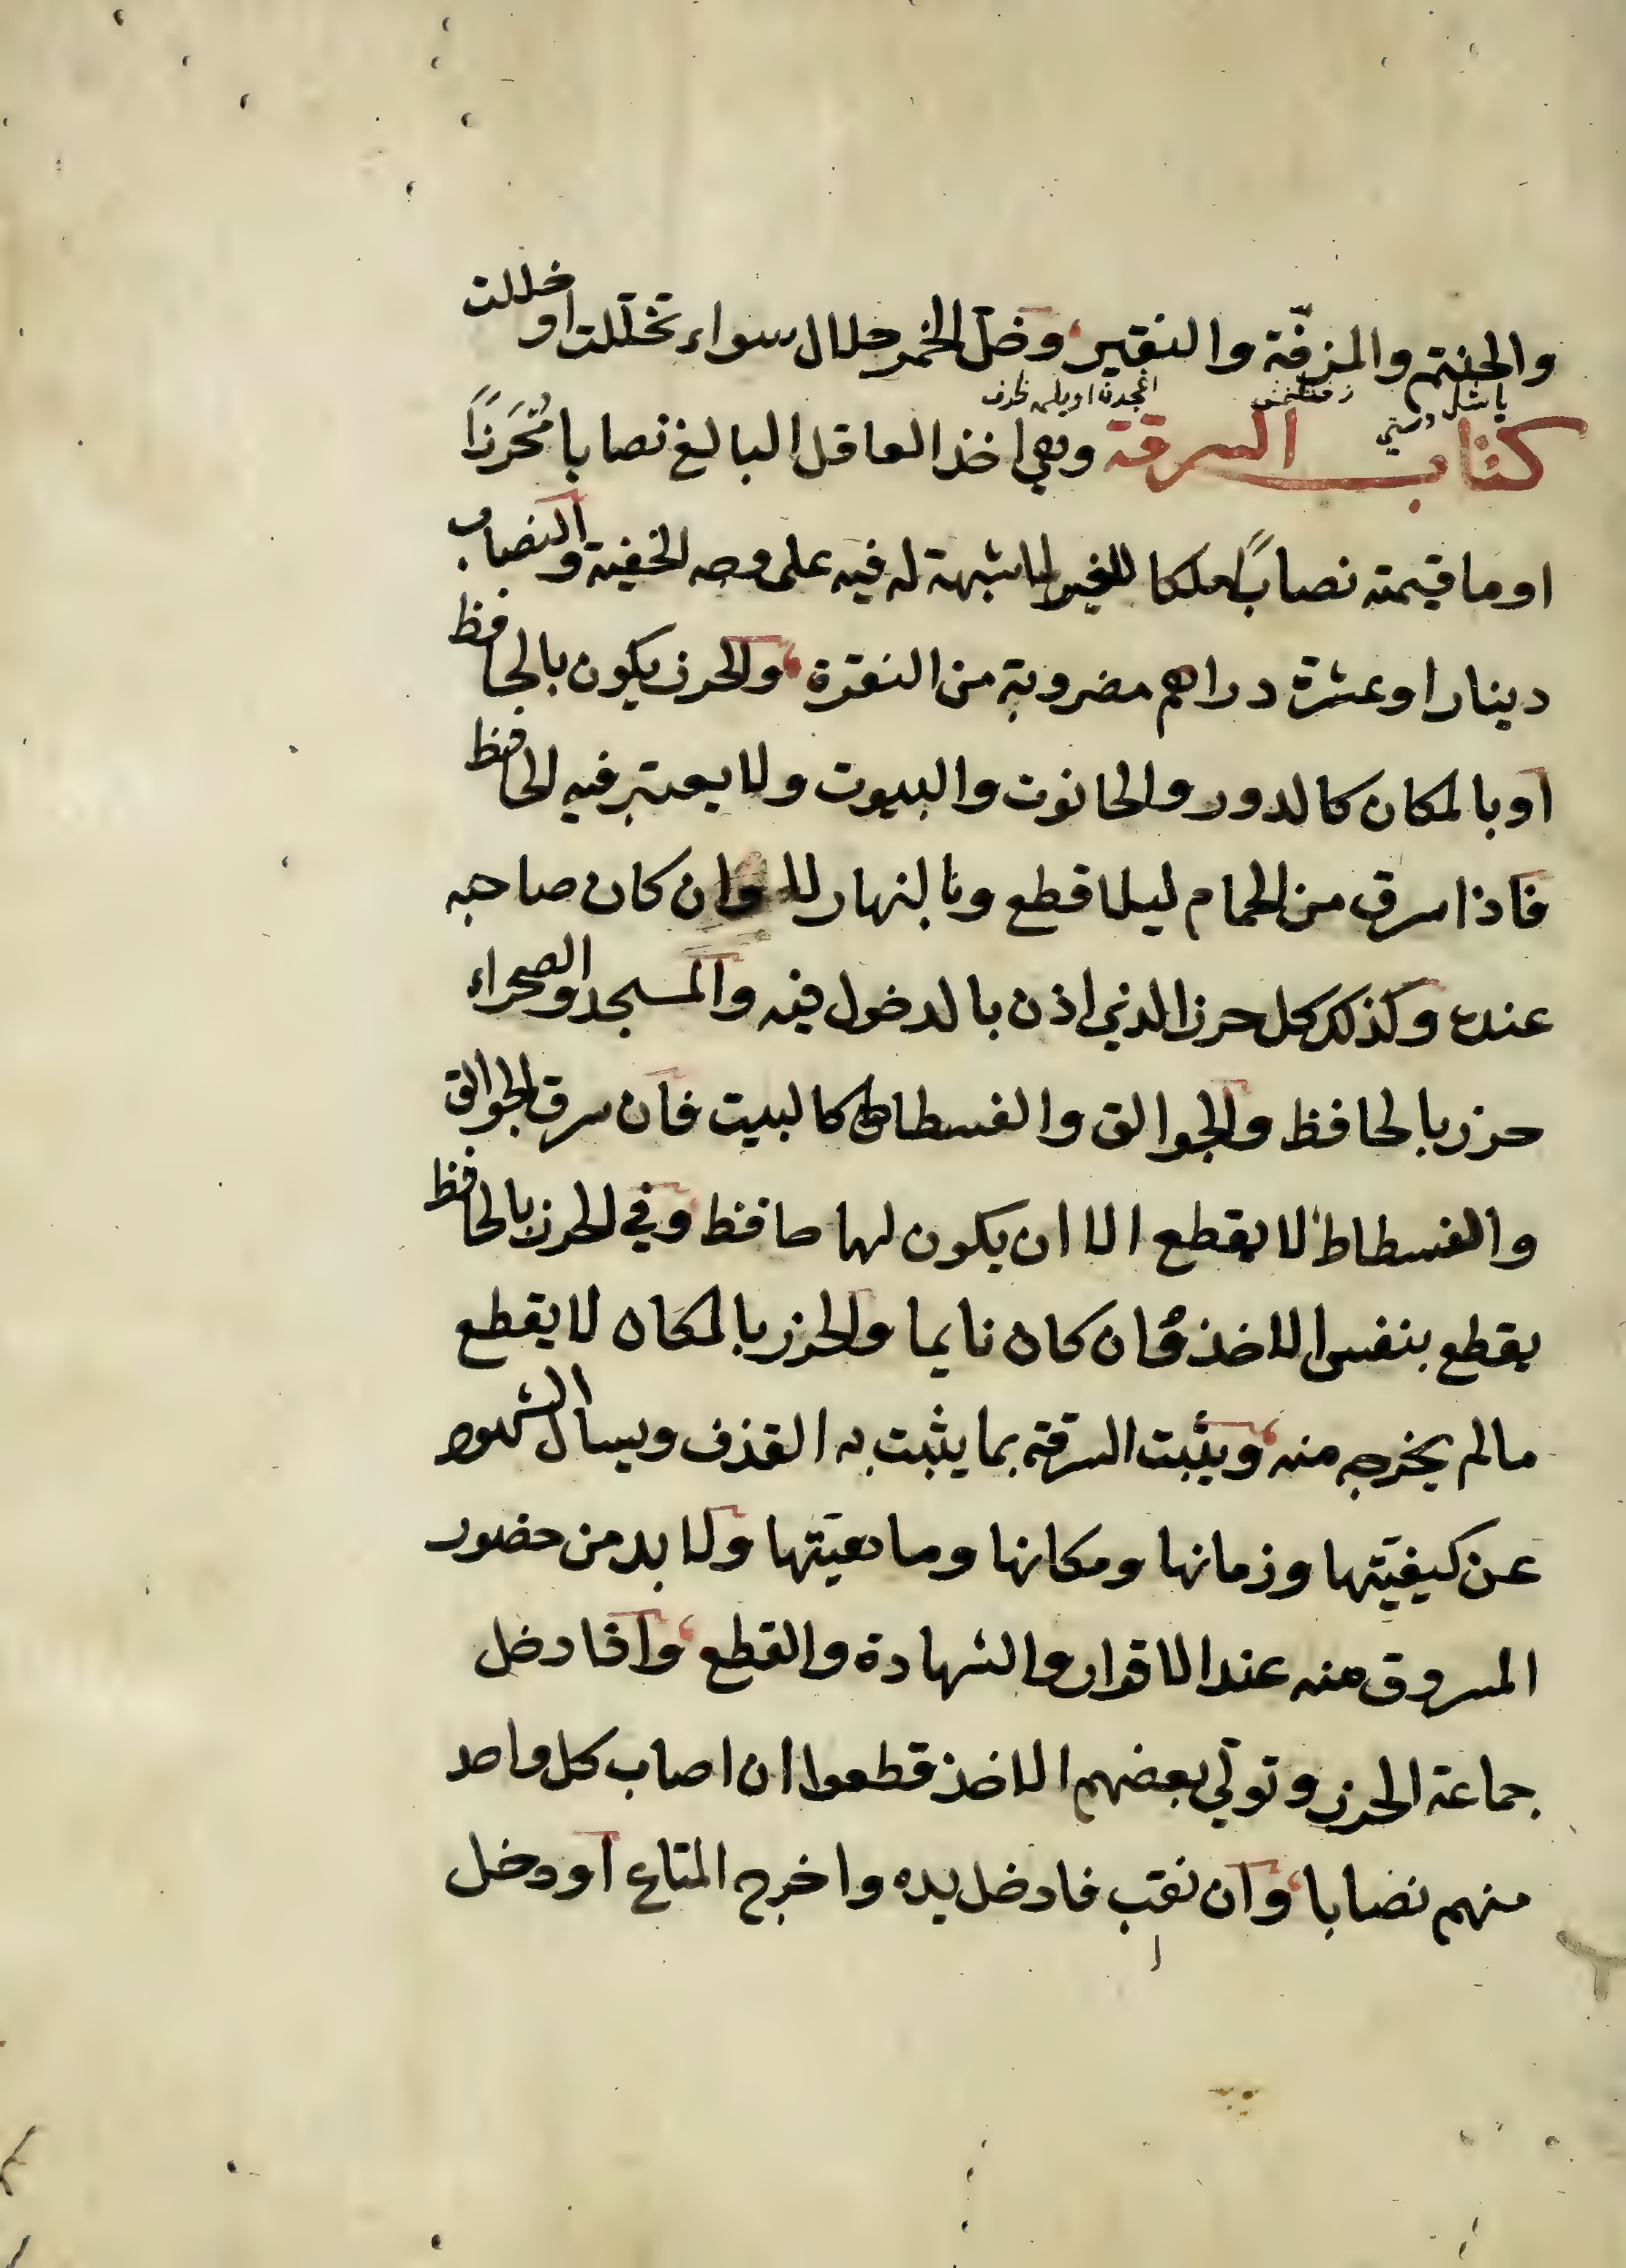 والحنتم والمزفّة والنقير وخل الخمر حلال سواء تخللت او خللت
كتاب السرقة وهي اخذ العاقل البالغ نصابا مُحَرزًا
او ما قيمته نصاباً ملكا للغير لا شبهة له فيه على وجه الخفية والنصاب
دينار او عشرة دراهم مضروبة من النقرة والحرز يكون بالحافظ
او بالمكان كالدور والحانوت والبيوت ولا يعتبر فيه الحافظ
فاذا سرق من الحمام ليلا قطع وبالنهار لا وان كان صاحبه
عنده وكذلك كل حرز الذي اذن بالدخول فيه والمسجد والصحراء
حرز بالحافظ والجوالق والفسطاط كالبيت فان سرق الجوالق
والفسطاط لا يقطع الا ان يكون لها حافظ وفي الحرز بالحافظ
يقطع بنفس الاخذ وان كان نايما والحرز بالمكان لا يقطع
ما لم يخرجه منه ويثبت السرقة بما يثبت به القذف ويسال الشهود
عن كيفيّتها وزمانها ومكانها وماهيّتها ولا بد من حضور
المسروق منه عند الاقرار والشهادة والقطع واذا دخل
جماعة الحرز وتولّي بعضهم الاخذ قطعوا ان اصاب كل واحد
منهم نصابا وان نقب فادخل يده واخرج المتاع او دخل